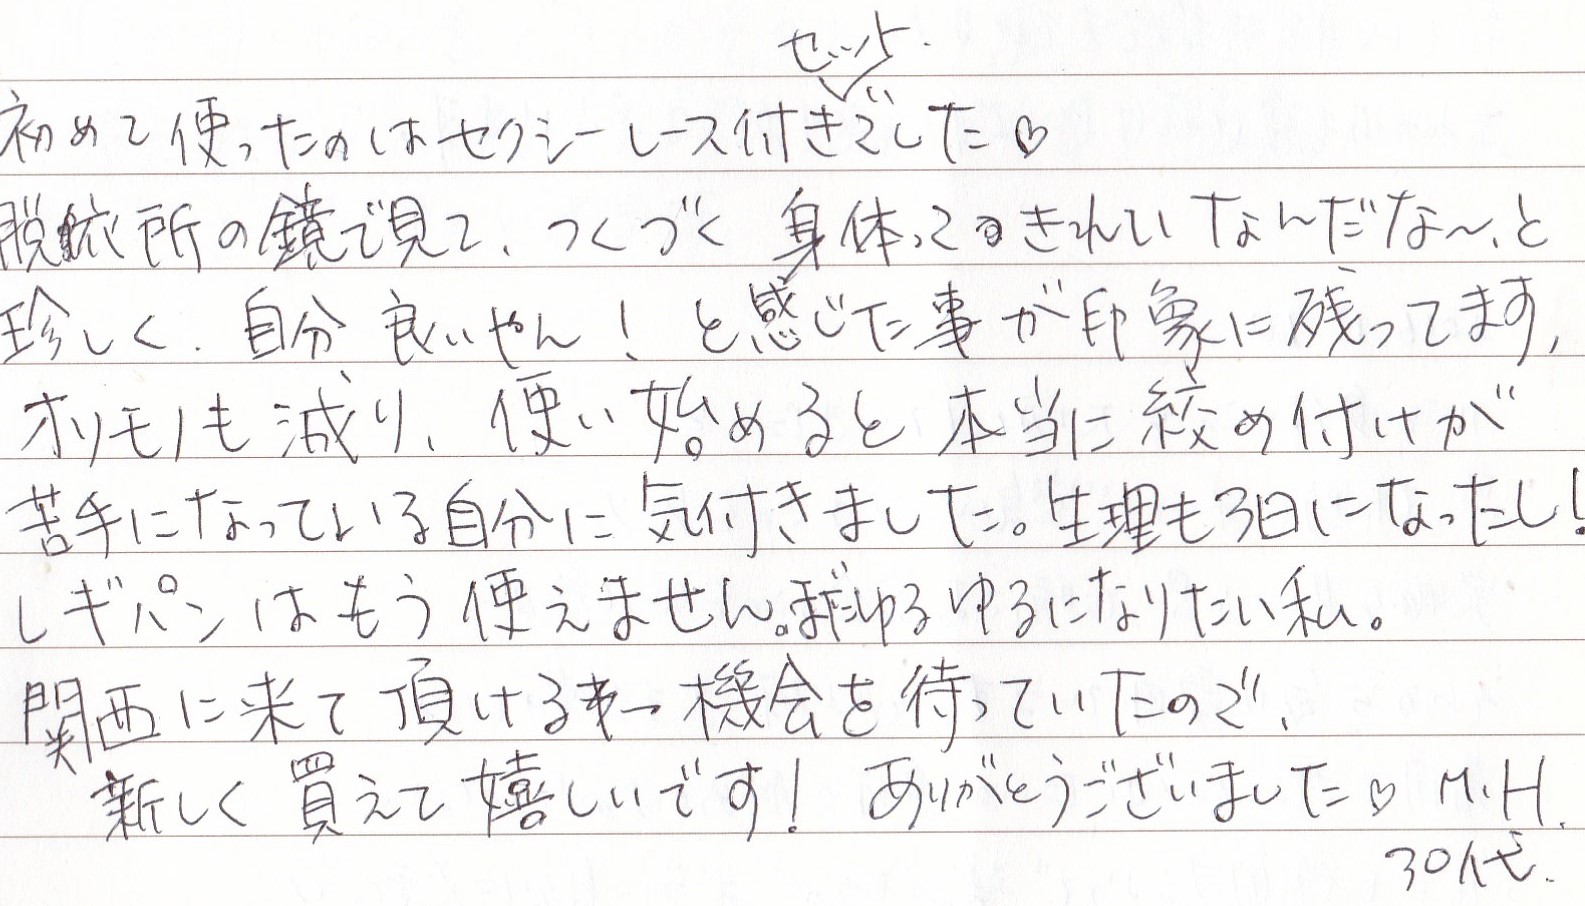 セット.
初めて使ったのはセクシーレース付きでした♡
脱衣所の鏡で見て、つくづく身体ってきれいなんだな〜、と
珍しく、自分良いやん！と感じた事が印象に残ってます,
オリモノも減り、使い始めると本当に絞め付けが
苦手になっている自分に気付きました。生理も3日になったし！
レギパンはもう使えません。まだゆるゆるになりたい私。
関西に来て頂ける機会を待っていたので、
新しく買えて嬉しいです！ありがとうございました♡ M.H.
30代.